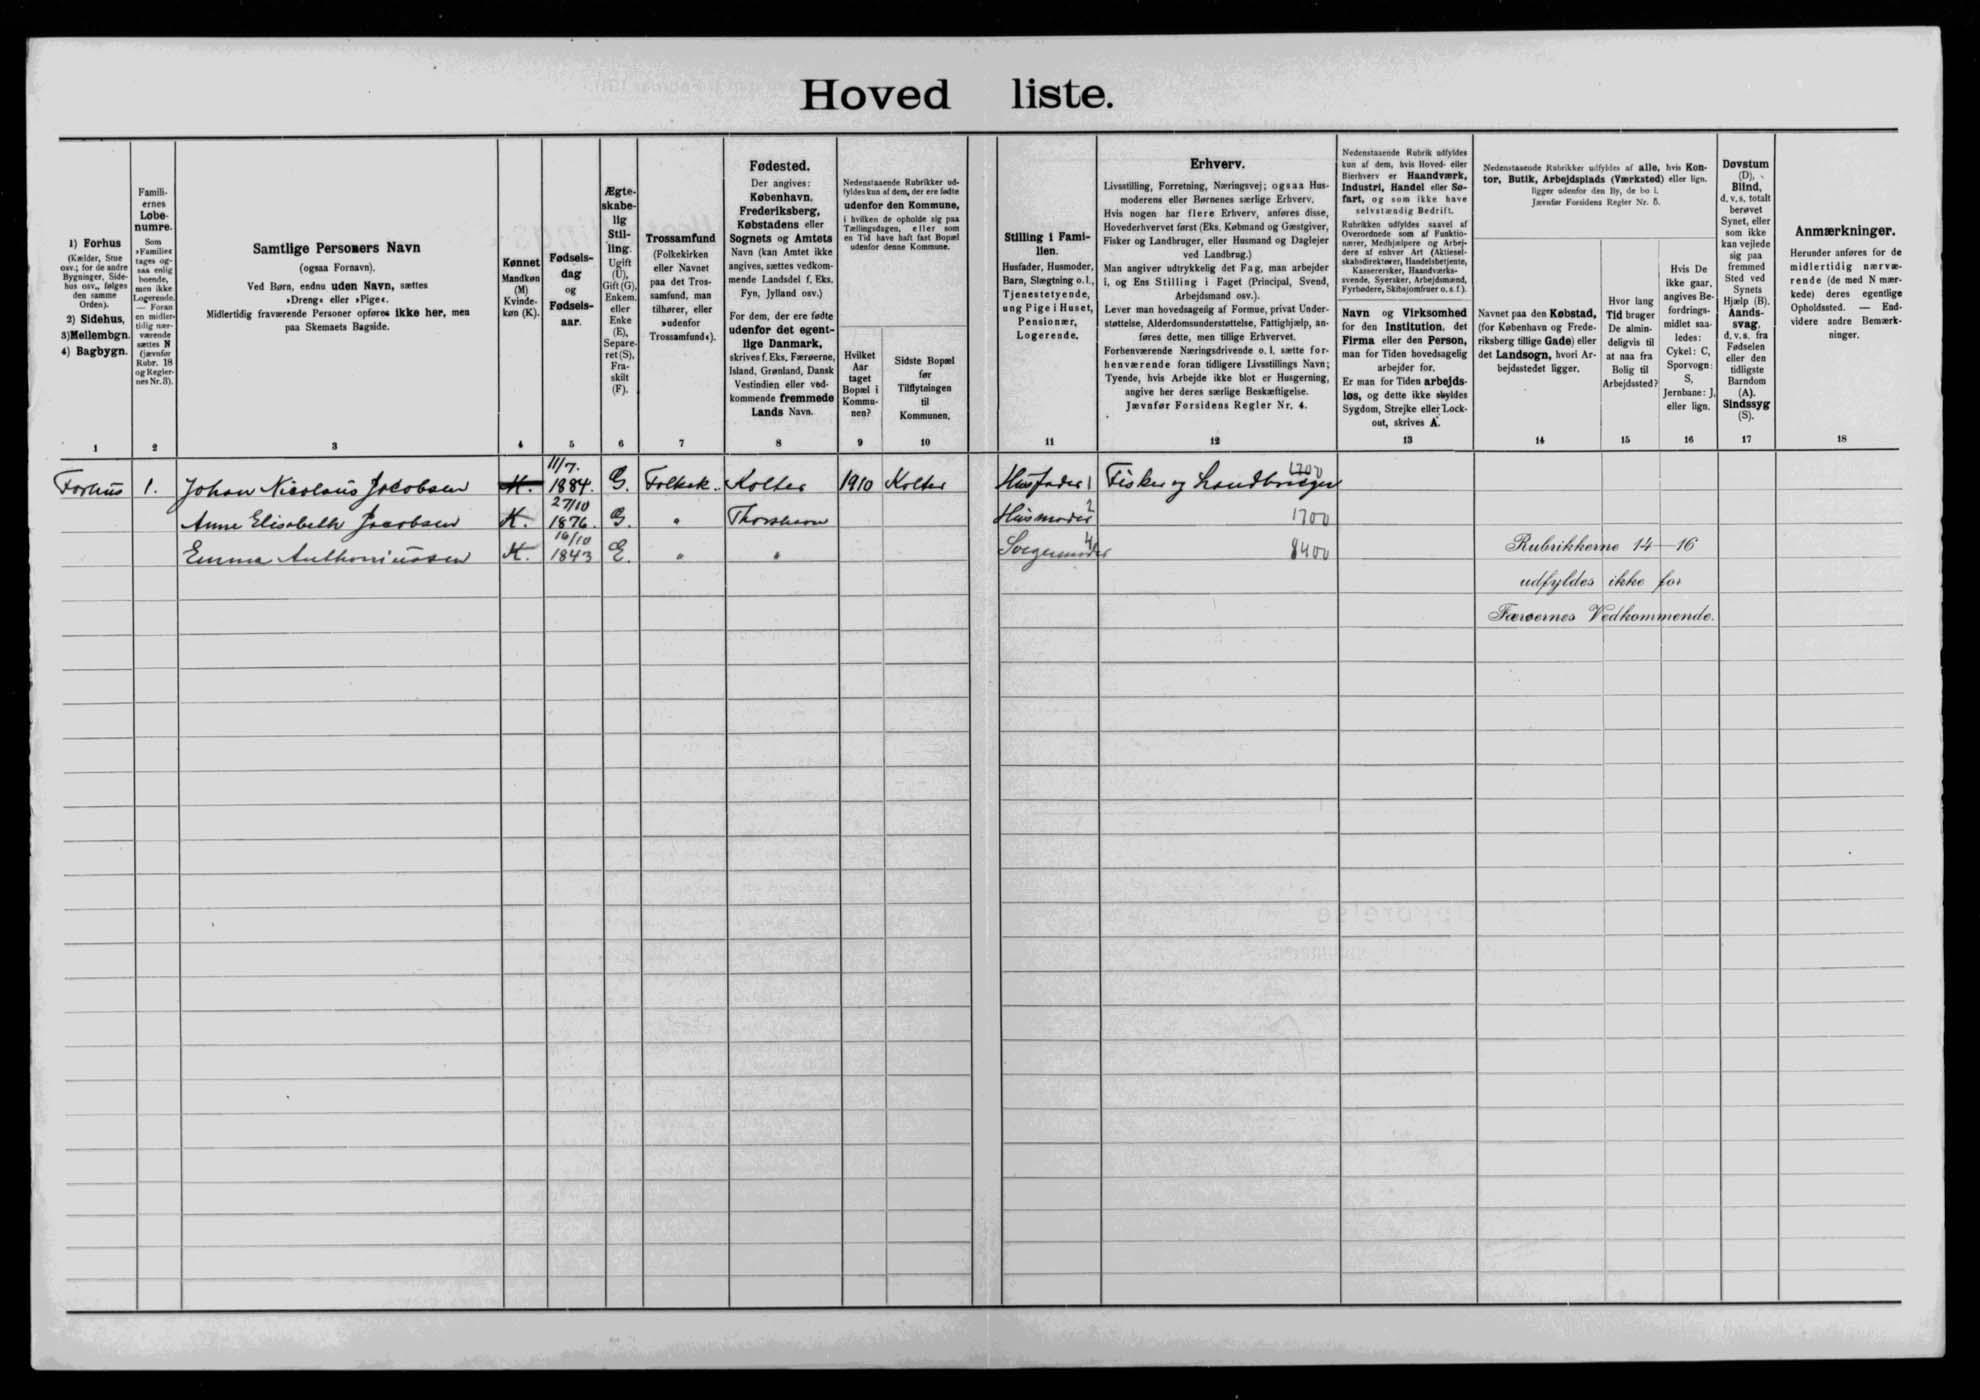 Hoved liste.
1) Forhus
(Kælder, Stue
osv.; for de andre
Bygninger, Side-
hus osv., følges
den samme
Orden).
2) Sidehus,
3) Mellembgn.
4) Bagbygn.
1
Famili-
ernes
Løbe-
numre.
Som
»Familie«
tages og-
saa enlig
boende,
men ikke
Logerende.
— Foran
en midler-
tidig nær-
værende
sættes N
(jævnfør
Rubr. 18
og Regler-
nes Nr. 3).
2
Samtlige Personers Navn
(ogsaa Fornavn).
Ved Børn, endnu uden Navn, sættes
»Dreng« eller »Pige«.
Midlertidig fraværende Personer opføres ikke her, men
paa Skemaets Bagside.
3
Kønnet
Mandkøn
(M)
Kvinde-
køn (K).
4
Fødsels-
dag
og
Fødsels-
aar.
5
Ægte-
skabe-
lig
Stil-
ling.
Ugift
(U),
Gift (G),
Enkem.
eller
Enke
(E),
Separe-
ret (S),
Fra-
skilt
(F).
6
Trossamfund
(Folkekirken
eller Navnet
paa det Tros-
samfund, man
tilhører, eller
»udenfor
Trossamfund«).
7
Fødested.
Der angives:
København,
Frederiksberg,
Købstadens eller
Sognets og Amtets
Navn (kan Amtet ikke
angives, sættes vedkom-
mende Landsdel f. Eks.
Fyn, Jylland osv.)
For dem, der ere fødte
udenfor det egent-
lige Danmark,
skrives f. Eks. Færøerne,
Island, Grønland, Dansk
Vestindien eller ved-
kommende fremmede
Lands Navn.
8
Nedenstaaende Rubrikker ud-
fyldes kun af dem, der ere fødte
udenfor den Kommune,
i hvilken de opholde sig paa
Tællingsdagen, eller som
en Tid have haft fast Bopæl
udenfor denne Kommune.
Hvilket
Aar
taget
Bopæl i
Kommu-
nen?
9
Sidste Bopæl
før
Tilflytningen
til
Kommunen.
10
Stilling i Fami-
lien.
Husfader, Husmoder,
Barn, Slægtning o. l.,
Tjenestetyende,
ung Pige i Huset,
Pensionær,
Logerende.
11
Erhverv.
Livsstilling, Forretning, Næringsvej; ogsaa Hus-
moderens eller Børnenes særlige Erhverv.
Hvis nogen har flere Erhverv, anføres disse,
Hovederhvervet først (Eks. Købmand og Gæstgiver,
Fisker og Landbruger, eller Husmand og Daglejer
ved Landbrug.)
Man angiver udtrykkelig det Fag, man arbejder
i, og Ens Stilling i Faget (Principal, Svend,
Arbejdsmand osv.).
Lever man hovedsagelig af Formue, privat Under-
støttelse, Alderdomsunderstøttelse, Fattighjælp, an-
føres dette, men tillige Erhvervet.
Forhenværende Næringsdrivende o. l. sætte for-
henværende foran tidligere Livsstillings Navn;
Tyende, hvis Arbejde ikke blot er Husgerning,
angive her deres særlige Beskæftigelse.
Jævnfør Forsidens Regler Nr. 4.
12
Nedenstaaende Rubrik udfyldes
kun af dem, hvis Hoved- eller
Bierhverv er Haandværk,
Industri, Handel eller Sø-
fart, og som ikke have
selvstændig Bedrift.
Rubrikken udfyldes saavel af
Overordnede som af Funktio-
nærer, Medhjælpere og Arbej-
dere af enhver Art (Aktiesel-
skabsdirektører, Handelsbetjente,
Kassererseker, Haandværks-
svende, Syersker, Arbejdsmænd,
Fyrbødere, Skibsjomfruer o. s. f.).
Navn og Virksomhed
for den Institution, det
Firma eller den Person,
man for Tiden hovedsagelig
arbejder for.
Er man for Tiden arbejds-
løs, og dette ikke skyldes
Sygdom, Strejke eller Lock-
out, skrives A.
13
Nedenstaaende Rubrikker udfyldes af alle, hvis Kon-
tor, Butik, Arbejdsplads (Værksted) eller lign.
ligger udenfor den By, de bo i.
Jævnfør Forsidens Regler Nr. 5.
Navnet paa den Købstad,
(for København og Frede-
riksberg tillige Gade) eller
det Landsogn, hvori Ar-
bejdsstedet ligger.
14
Hvor lang
Tid bruger
De almin-
deligvis til
at naa fra
Bolig til
Arbejdssted?
15
Hvis De
ikke gaar,
angives Be-
fordrings-
midlet saa-
ledes:
Cykel: C,
Sporvogn:
S,
Jernbane: J,
eller lign.
16
Døvstum
(D),
Blind,
d. v. s. totalt
berøvet
Synet, eller
som ikke
kan vejlede
sig paa
fremmed
Sted ved
Synets
Hjælp (B).
Aands-
svag,
d. v. s. fra
Fødselen
eller den
tidligste
Barndom
(A).
Sindssyg
(S).
17
Anmærkninger.
Herunder anføres for de
midlertidig nærvæ-
rende (de med N mær-
kede) deres egentlige
Opholdssted. — End-
videre andre Bemærk-
ninger.
18
Forhus 1. Johan Nicolaus Jacobsen M. 11/7. 1884. G. Folkek. Kolter 1910 Kolter Husfader 1 Fisker og Landbruger 1700
Anne Elisabeth Jacobsen K. 27/10 1876. G. " Thorshavn Husmoder 2 1700
Emma Anthoniussen K. 16/10 1843 E. " " Svigermoder 4 8400
Rubrikkerne 14—16
udfyldes ikke for
Færøernes Vedkommende.